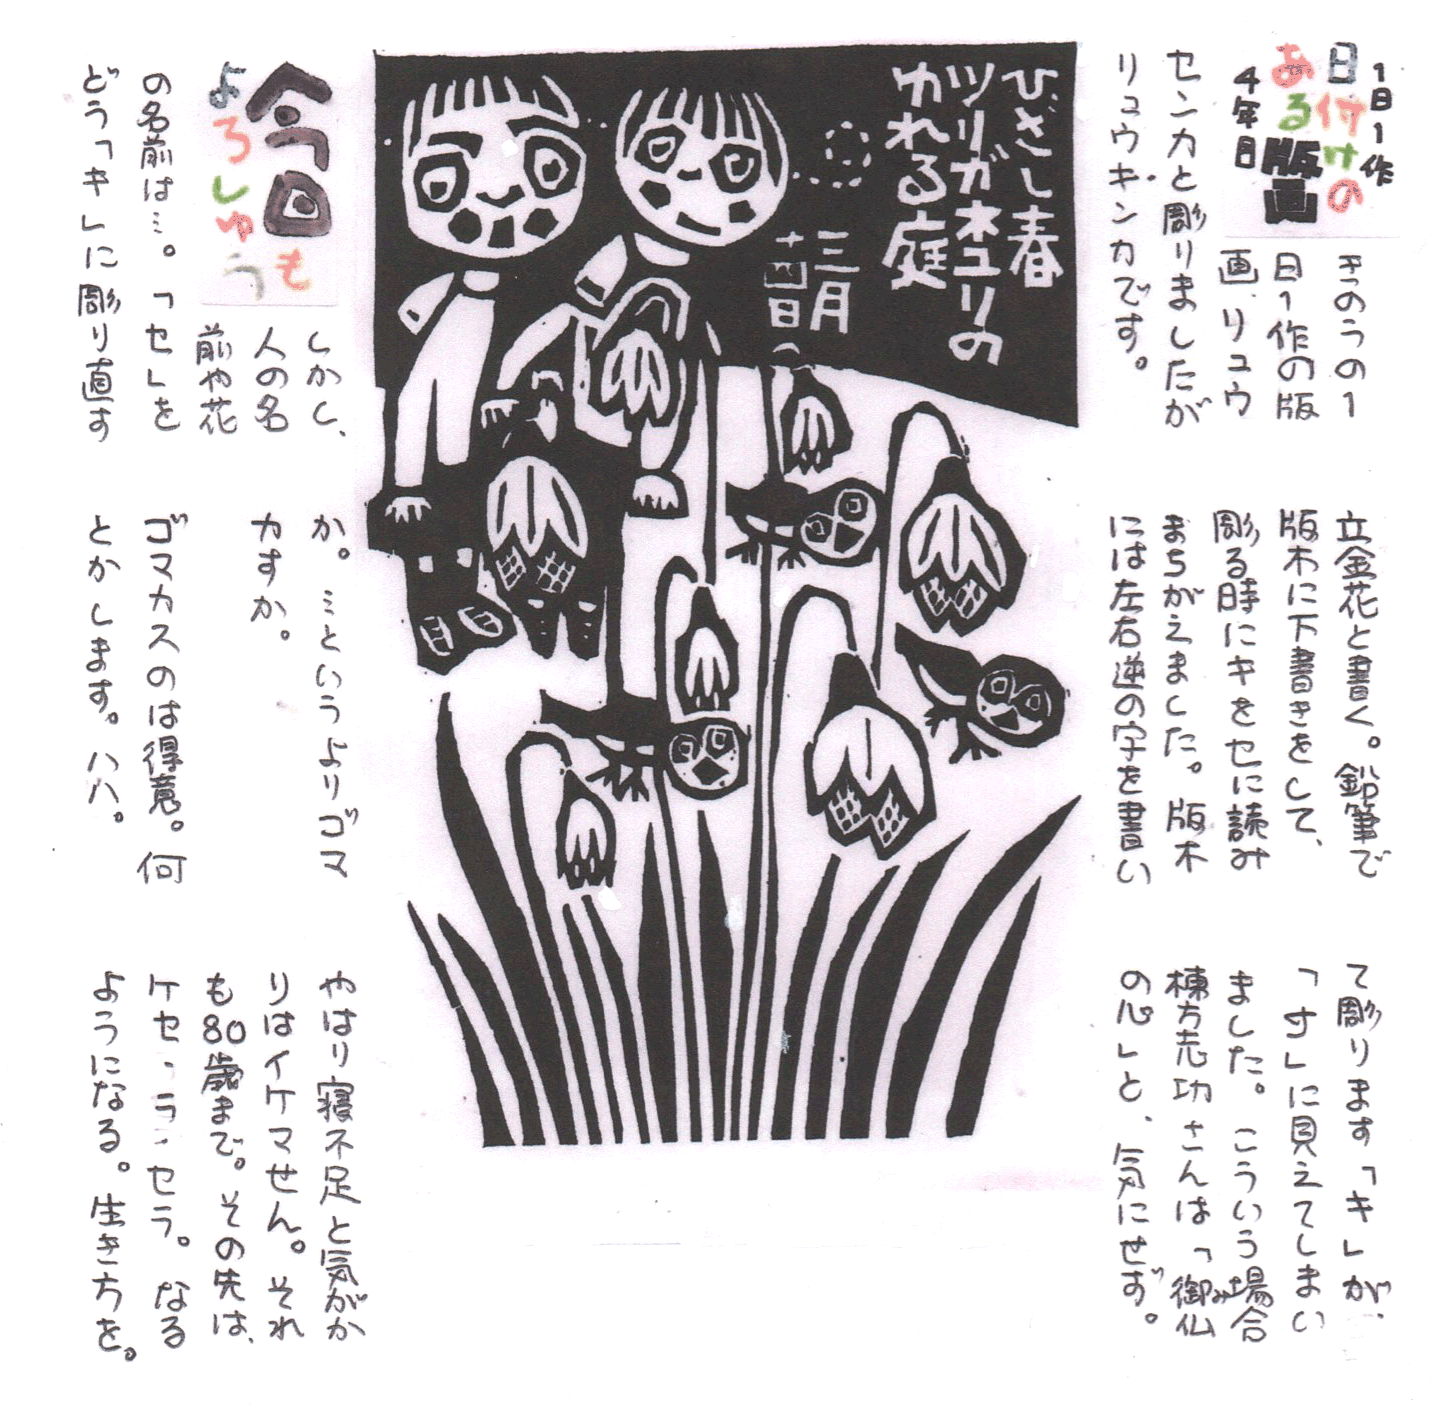 1日1作
日付けの
ある版画
4年目
きのうの1
日1作の版
画、リュウ
センカと彫りましたが
リュウキンカです。
立金花と書く。鉛筆で
版木に下書きをして、
彫る時にキをセに読み
まちがえました。版木
には左右逆の字を書い
て彫ります「キ」が、
「す」に見えてしまい
ました。こういう場合
棟方志功さんは「御仏
み
の心」と、気にせず。
ひざし春
ツリガネユリの
ゆれる庭
三月
十四日
今回も
よろしゅう
しかし、
人の名
前や花
の名前は…。「セ」を
どう「キ」に彫り直す
か。…というよりゴマ
カすか。
ゴマカスのは得意。何
とかします。ハハ。
やはり寝不足と気がか
りはイケマせん。それ
も80歳まで。その先は、
ケセ・ラ・セラ。なる
ようになる。生き方を。